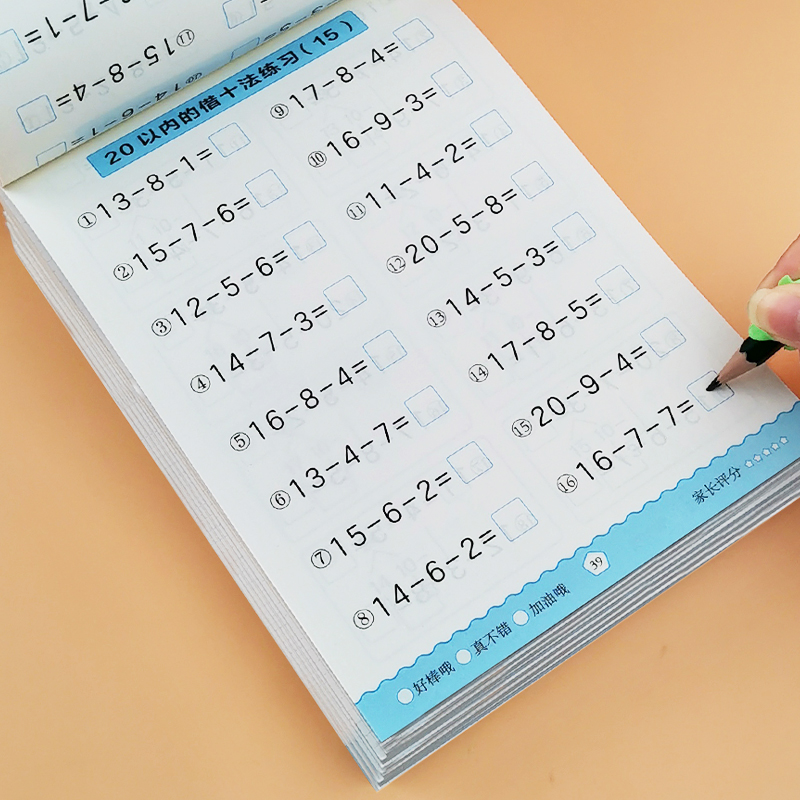 ⑪15-8-4=
20以内的借十法练习(15)
①13-8-1=
②15-7-6=
③12-5-6=
④14-7-3=
⑤16-8-4=
⑥13-4-7=
⑦15-6-2=
⑧14-6-2=
⑨17-8-4=
⑩16-9-3=
⑪11-4-2=
⑫20-5-8=
⑬14-5-3=
⑭17-8-5=
⑮20-9-4=
⑯16-7-7=
家长评分☆☆☆☆☆
39
好棒哦 真不错 加油哦